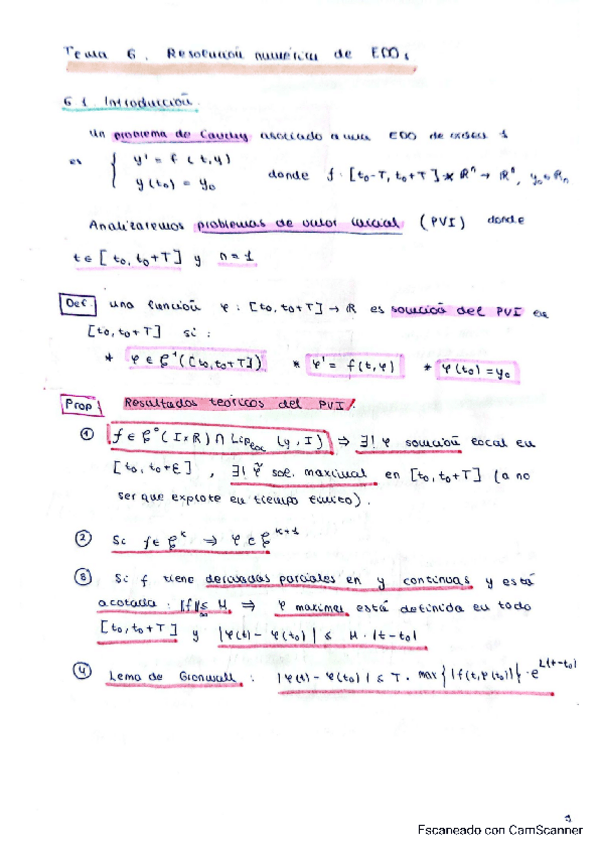 Tema 6. Resolución numérica de EDOs
6.1. Introducción.
Un problema de Cauchy asociado a una EDO de orden 1
es { y' = f(t,y)
y(t₀) = y₀ donde f: [t₀-T, t₀+T] x ℝⁿ → ℝⁿ, y₀∈ℝₙ
Analizaremos problemas de valor inicial (PVI) donde
t∈[t₀, t₀+T] y n=1
Def. una función φ: [t₀, t₀+T] → ℝ es solución del PVI en
[t₀, t₀+T] si:
* φ∈𝒞¹([t₀, t₀+T]) * φ' = f(t,φ) * φ(t₀)=y₀
Prop Resultados teóricos del PVI
① f∈𝒞⁰(I×ℝ) ∩ Lip_loc(y,I) ⇒ ∃! φ solución local en
[t₀, t₀+ε], ∃! φ̃ sol. maximal en [t₀, t₀+T] (a no
ser que explote en tiempo finito).
② Si f∈𝒞ᵏ ⇒ φ∈𝒞ᵏ⁺¹
③ Si f tiene derivadas parciales en y continuas y está
acotada: ‖f‖≤ M ⇒ φ maximal está definida en todo
[t₀, t₀+T] y |φ(t) - φ(t₀)| ≤ M·|t-t₀|
④ Lema de Gronwall: |φ(t) - φ(t₀)| ≤ T· max{|f(t,φ(t₀))|}·e^{L(t-t₀)}
Escaneado con CamScanner